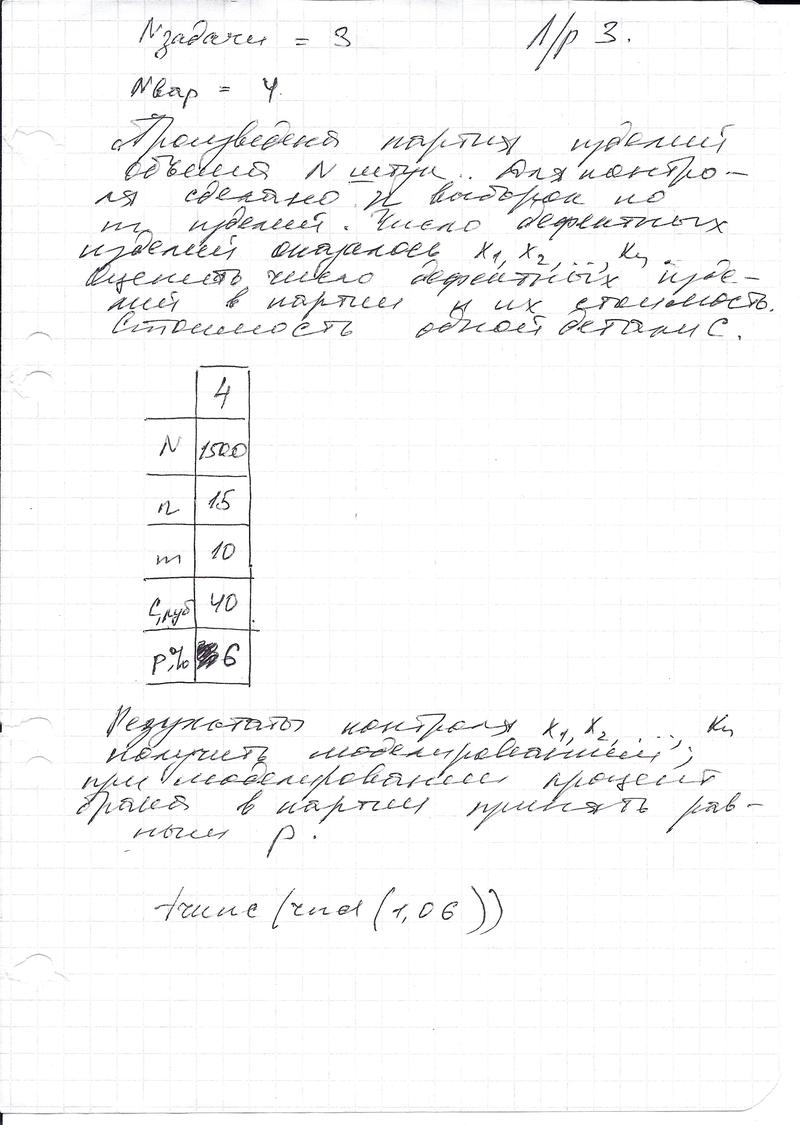 Nзадачи = 3 Л/р 3.
Nвар = 4
Произведена партия изделий
объема N штук. Для контро-
ля сделано n выборок по
m изделий. Число дефектных
изделий оказалось x1, x2, ..., xn.
Оценить число дефектных изде-
лий в партии и их стоимость.
Стоимость одной детали C.
4
N 1500
n 15
m 10
C,руб 40
p,% 6
Результаты контроля x1, x2, ..., xn
получить моделированием;
при моделировании процент
брака в партии принять рав-
ным p.
trunc(rnd(1,06))